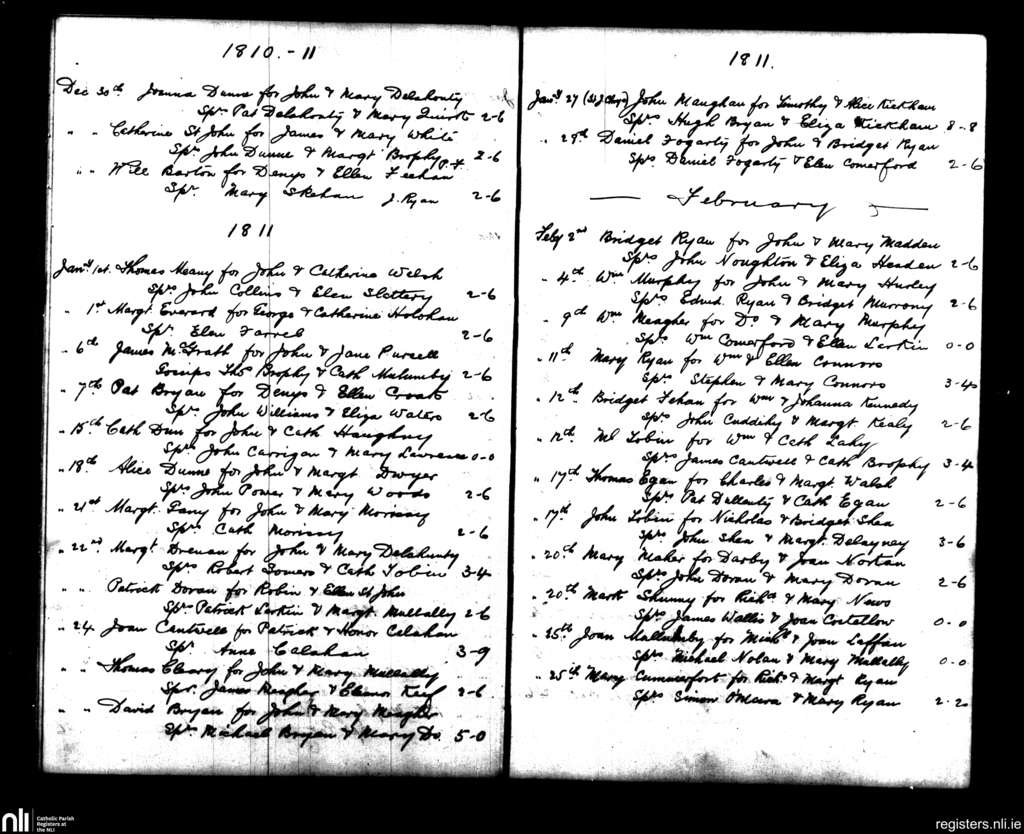 1810.-11
Dec 30th Joanna Dunne for John & Mary Delahonty
Sprs Pat Delahonty & Mary Quirk 2-6
" " Catherine St John for James & Mary White
Sprs John Dunne & Margt Brophy 2-6
" " Will Barton for Denys & Ellen Feehan
Spr. Mary Skehan J. Ryan 2-6
1811
Jany 1st. Thomas Meany for John & Catherine Welsh
Sprs John Collins & Elen Slattery 2-6
" 1st Margt. Everard for George & Catherine Holohan
Spr. Elen Farrel 2-6
" 6th James McGrath for John & Jane Pursell
Gossips Thos Brophy & Cath Mulumby 2-6
" 7th Pat Bryan for Denys & Ellen Croak
Sprs John Williams & Eliza Waters 2-6
" 15th Cath Dun for John & Cath Haughny
Sprs John Carrigan & Mary Lawrence 0-0
" 18th Alice Dunne for John & Margt Dwyer
Sprs John Power & Mary Woods 2-6
" 21st Margt. Fany for John & Mary Morissy
Spr. Cath Morissy 2-6
" 22nd Margt. Drenan for John & Mary Delahunty
Sprs Robert Somers & Cath Tobin 3-4
" " Patrick Doran for Robin & Ellen St John
Sprs Patrick Larkin & Margt. Mullally 2-6
" 24 Joan Cantwell for Patrick & Honor Calahan
Spr. Anne Calahan 3-9
" " Thomas Cleary for John & Mary Mullally
Sprs. James Meagher & Eleanor Keef 2-6
" " David Bryan for John & Mary Meagher
Sprs Michael Bryan & Mary Do. 5-0
1811.
Jany 27 (St J Chpl) John Maughan for Timothy & Alice Kickham
Sprs Hugh Bryan & Eliza Kickham 8-8
" 29th Daniel Fogarty for John & Bridget Ryan
Sprs Daniel Fogarty & Elen Comerford 2-6
February
Feby 2nd Bridget Ryan for John & Mary Madden
Sprs John Noughton & Eliza Headen 2-6
" 4th Wm Murphy for John & Mary Hurley
Sprs Edmd. Ryan & Bridget Murrony 2-6
" 9th Wm Meagher for Do. & Mary Murphy
Sprs Wm Comerford & Ellen Larkin 0-0
" 11th Mary Ryan for Wm & Ellen Connors
Sprs Stephen & Mary Connors 3-4
" 12th Bridget Fehan for Wm & Johanna Kennedy
Sprs John Cuddihy & Margt Kealy 2-6
" 12th Ml Tobin for Wm & Cath Lahy
Sprs James Cantwell & Cath Brophy 3-4
" 17th Thomas Egan for Charles & Margt. Walsh
Sprs Pat Dallunty & Cath Egan 2-6
" 17th John Tobin for Nicholas & Bridget Shea
Sprs John Shea & Margt. Delayney 3-6
" 20th Mary Maher for Darby & Joan Nortan
Sprs John Doran & Mary Doran 2-6
" 20th Mark Shunny for Richd & Mary News
Sprs James Wallis & Joan Costellow 0-0
" 25th Joan Mullumby for Michl & Joan Laffan
Sprs Michael Nolan & Mary Mullally 0-0
" 25th Mary Cummerfort for Richd & Margt Ryan
Sprs Simon O'Meara & Mary Ryan 2-2
nli
Catholic Parish
Registers at
the NLI
registers.nli.ie